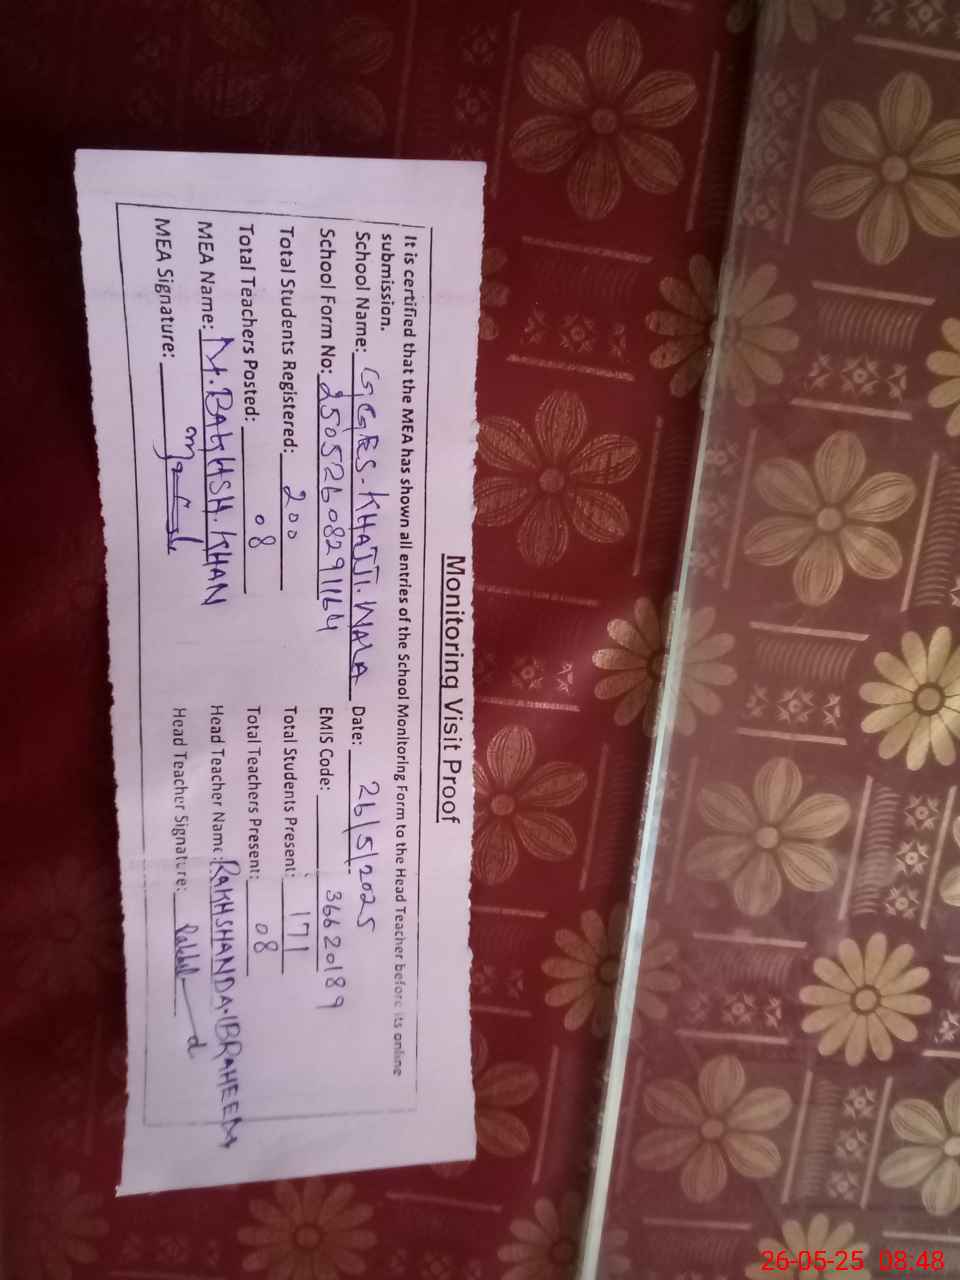 Monitoring Visit Proof
It is certified that the MEA has shown all entries of the School Monitoring Form to the Head Teacher before its online
submission.
School Name: GGES-KHAJJI.WALA Date: 26/5/2025
School Form No: 25052608291164 EMIS Code: 36620189
Total Students Registered: 200 Total Students Present: 171
Total Teachers Posted: 08 Total Teachers Present: 08
MEA Name: M.BAKHSH.KHAN Head Teacher Name: RAKHSHANDA.IBRAHEEM
MEA Signature: Head Teacher Signature:
26-05-25 08:48